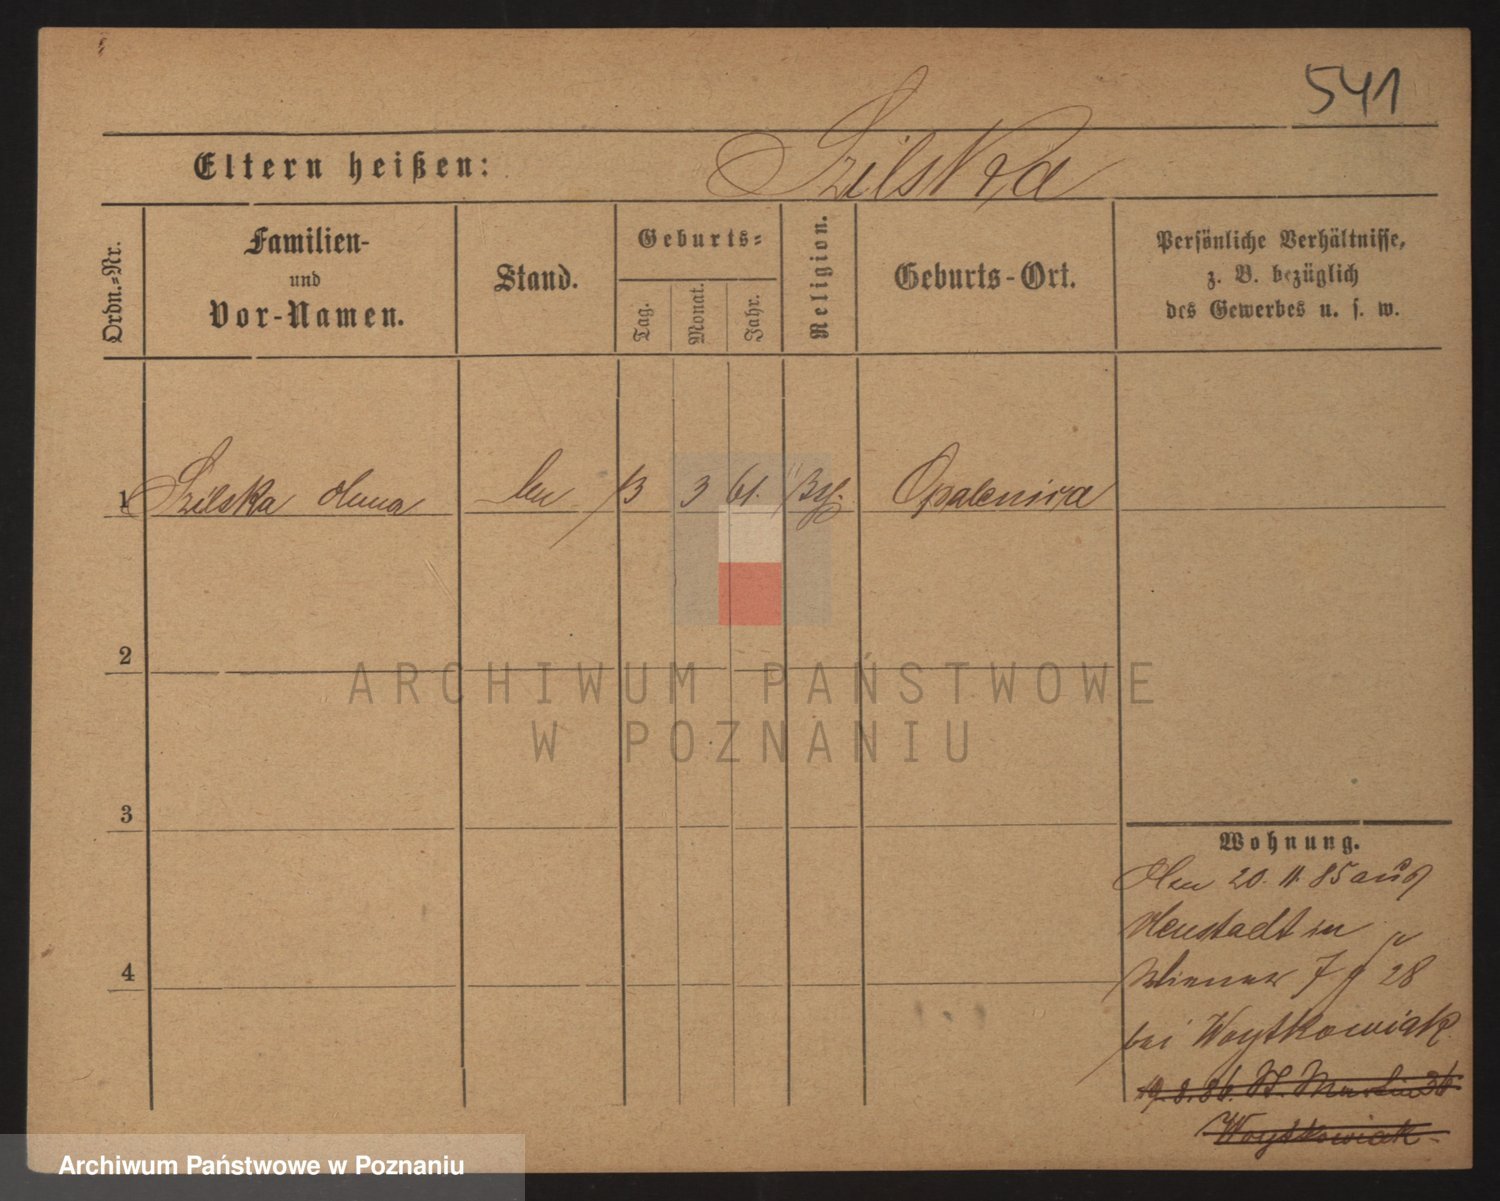 541
Eltern heißen: Szilska
Ordn.-Nr.
Familien-
und
Vor-Namen.
Stand.
Geburts-
Tag.
Monat.
Jahr.
Religion.
Geburts-Ort.
Persönliche Verhältnisse,
z. B. bezüglich
des Gewerbes u. s. w.
1 Szilska 3 61. Opalenica
2
3
4
ARCHIWUM PAŃSTWOWE
W POZNANIU
Wohnung.
20. 11. 85 aus
Neustadt in
28
bei Woytkowiak
19. 8. 86. St. Martin 36
Woytkowiak
Archiwum Państwowe w Poznaniu